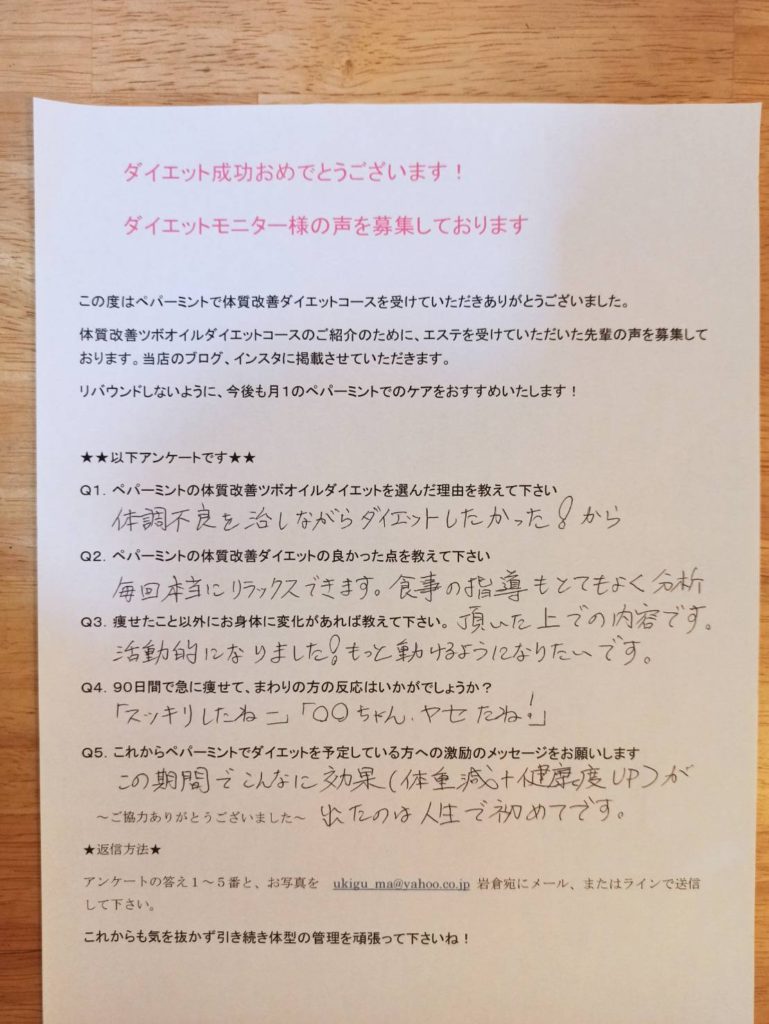 ダイエット成功おめでとうございます！
ダイエットモニター様の声を募集しております
この度はペパーミントで体質改善ダイエットコースを受けていただきありがとうございました。
体質改善ツボオイルダイエットコースのご紹介のために、エステを受けていただいた先輩の声を募集して
おります。当店のブログ、インスタに掲載させていただきます。
リバウンドしないように、今後も月１のペパーミントでのケアをおすすめいたします！
★★以下アンケートです★★
Q１．ペパーミントの体質改善ツボオイルダイエットを選んだ理由を教えて下さい
体調不良を治しながらダイエットしたかった！から
Q２．ペパーミントの体質改善ダイエットの良かった点を教えて下さい
毎回本当にリラックスできます。食事の指導もとてもよく分析
頂いた上での内容です。
Q３．痩せたこと以外にお身体に変化があれば教えて下さい。
活動的になりました！もっと動けるようになりたいです。
Q４．９０日間で急に痩せて、まわりの方の反応はいかがでしょうか？
「スッキリしたねー」「〇〇ちゃん、ヤセたね！」
Q５．これからペパーミントでダイエットを予定している方への激励のメッセージをお願いします
この期間でこんなに効果(体重減+健康度UP)が
出たのは人生で初めてです。
～ご協力ありがとうございました～
★返信方法★
アンケートの答え１～５番と、お写真を ukigu_ma@yahoo.co.jp 岩倉宛にメール、またはラインで送信
して下さい。
これからも気を抜かず引き続き体型の管理を頑張って下さいね！